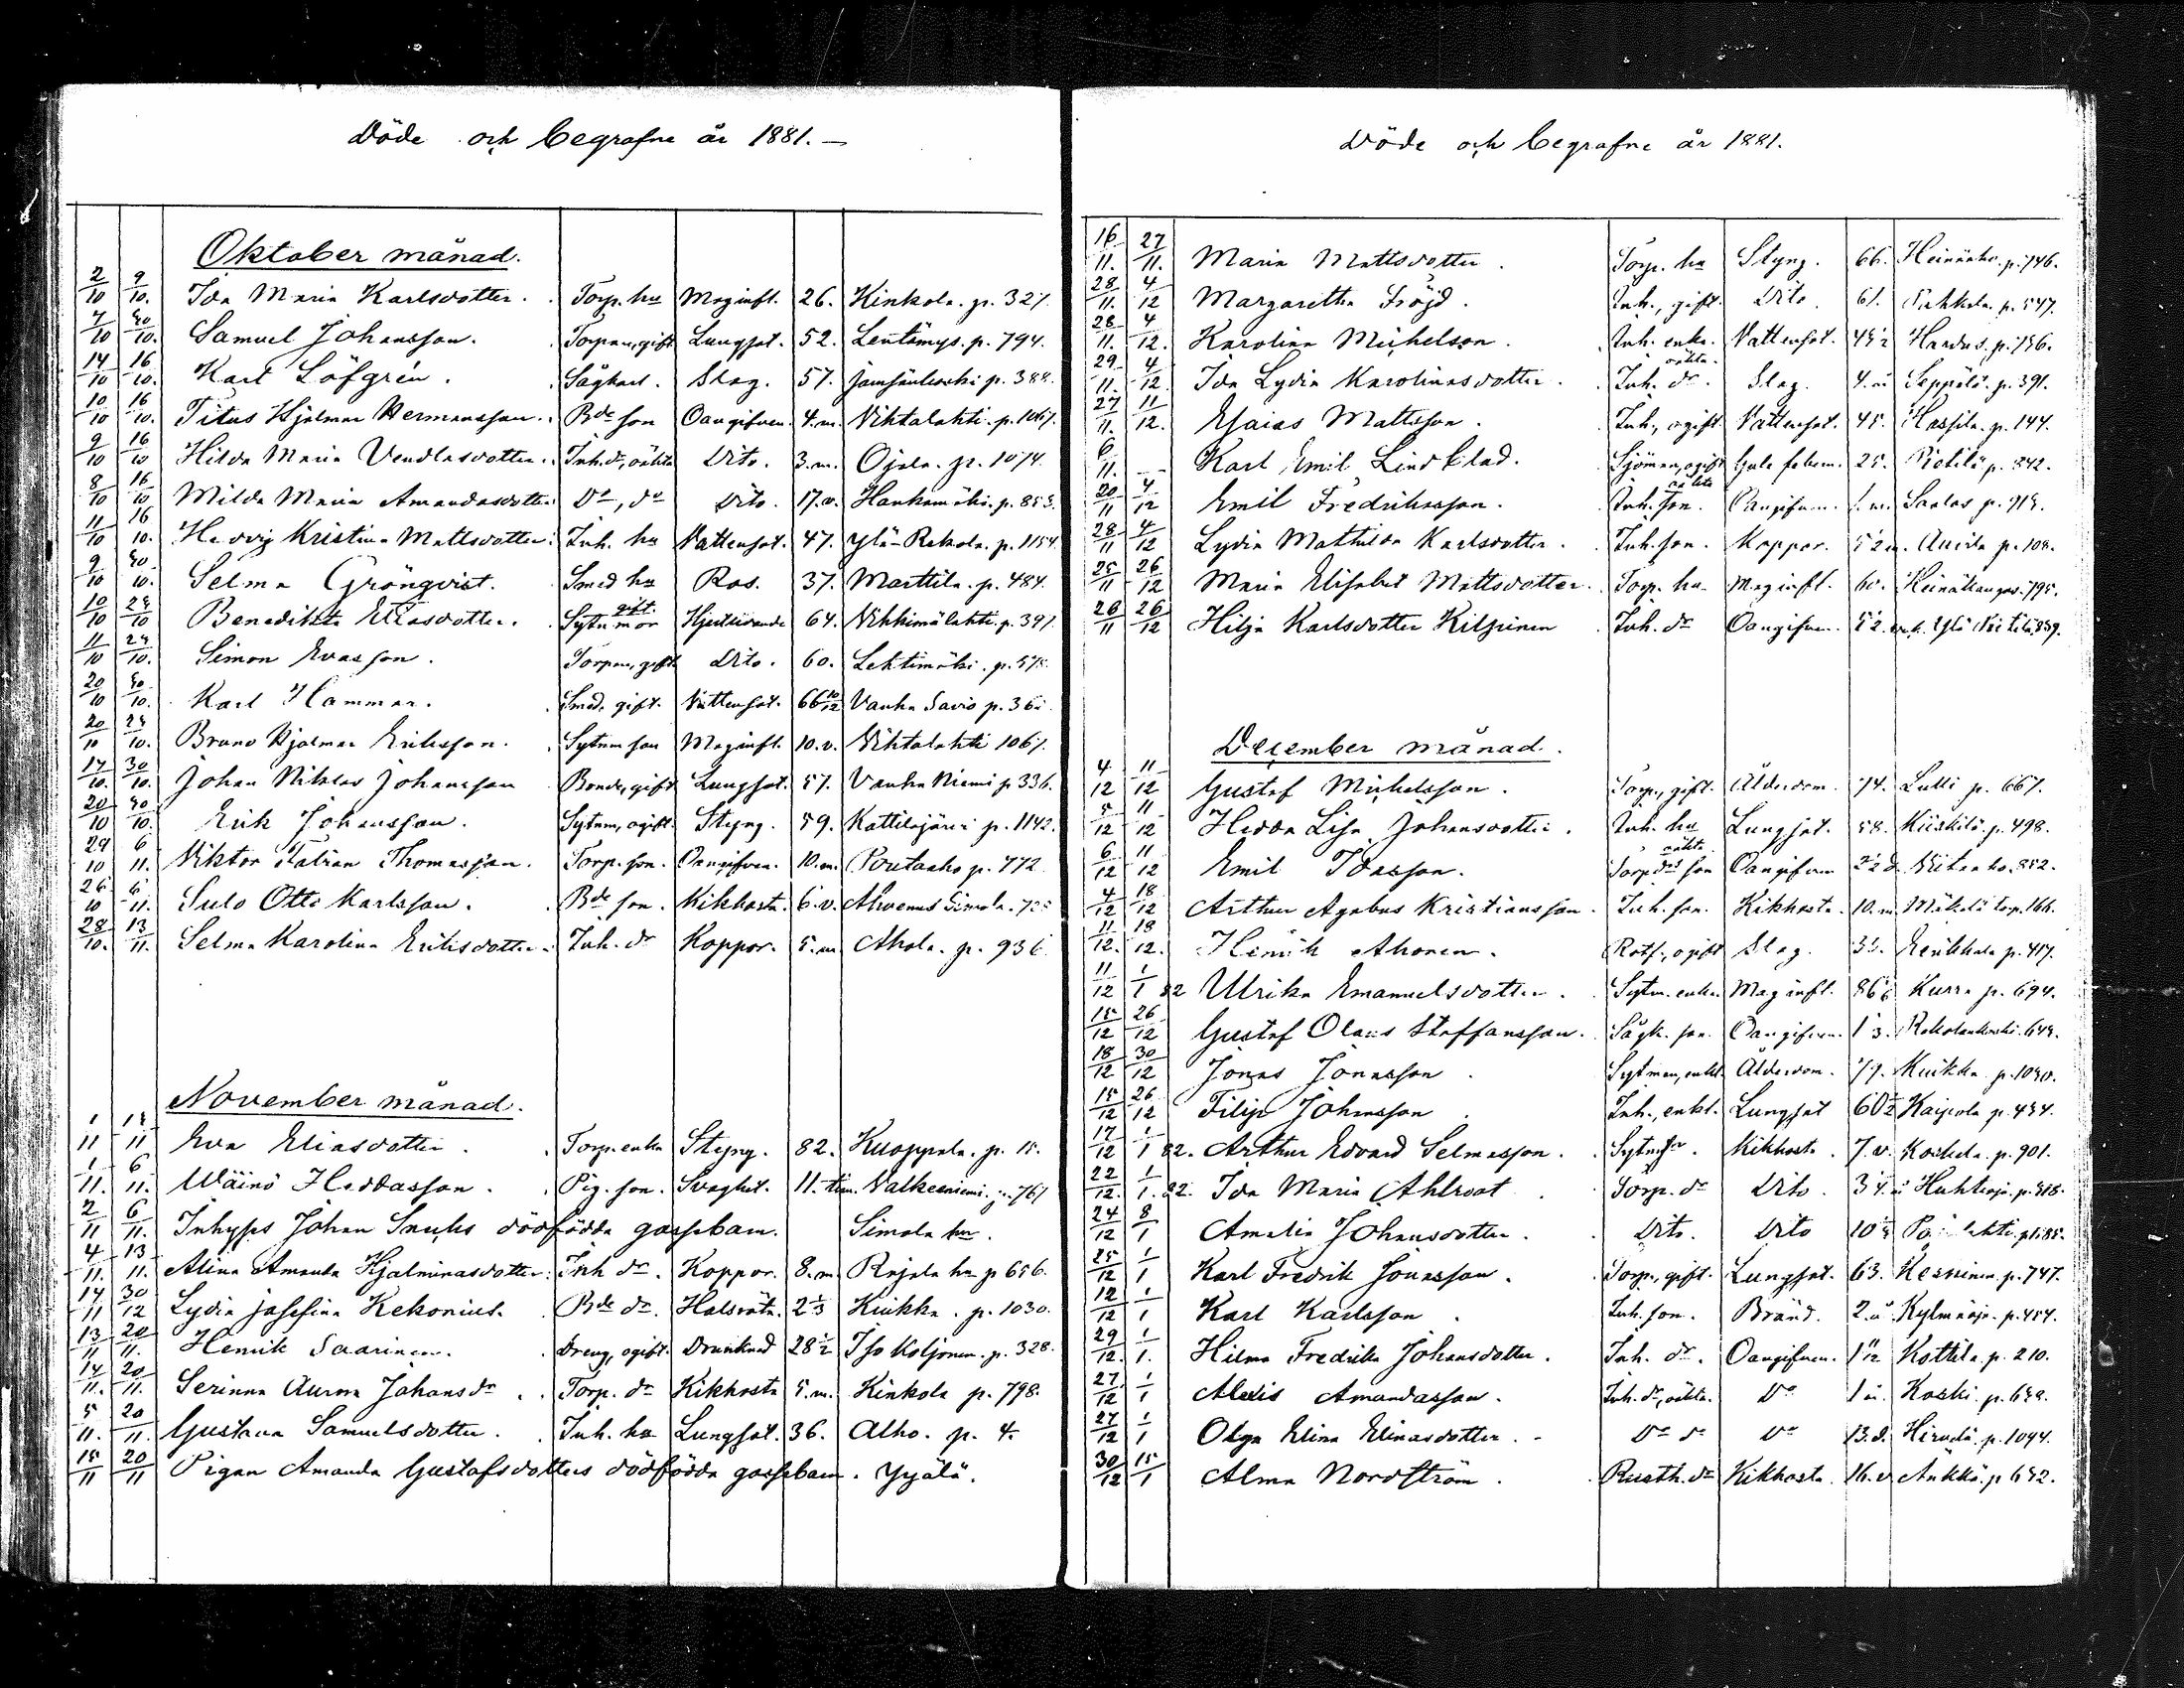 Döde och begrafne år 1881.—
Oktober månad.
2/10 9/10. Ida Maria Karlsdotter. Torp. hu Maginfl. 26. Kinkola. p. 327.
7/10 30/10. Samuel Johansson. Torpare, gift Lungsot. 52. p. 794.
14/10 16/10. Karl Löfgrén. Sågkarl. Slag. 57. p. 388.
10/10 16/10. Titus Hjalmar Hermansson. Bde son Oangifven. 4. m. Vihtalahti. p. 1067.
9/10 16/10 Hilda Maria Vendlasdotter. Inh. dr, oäkta Dito. 3. m. Ojala. p. 1074.
8/10 16/10 Milda Maria Amandasdotter Do, do Dito. 17. v. Hankamäki. p. 853.
11/10 16/10. Hedvig Kristina Mattsdotter. Inh. hu Vattensot. 47. Ylä-Rekola. p. 1154
9/10 30/10. Selma Grönqvist. Smed hu Ros. 37. Marttila. p. 484.
10/10 23/10 Benedikta Eliasdotter. Sytn. mor gift. Hjertlidande 64. Vihkimälahti. p. 397.
11/10 23/10. Simon Evasson. Torpare, gift Dito. 60. Lehtimäki. p. 575.
20/10 30/10. Karl Hammar. Smed, gift. Vattensot. 66 10/12 Vanha Savio p. 36
20/10 23/10. Bruno Hjalmar Eriksson. Sytnm son Maginfl. 10. v. Vihtalahti 1067.
17/10. 30/10. Johan Niklas Johansson Bonde, gift Lungsot. 57. Vanha Niemi p. 336.
20/10 30/10. Erik Johansson. Sytnm, ogift. Styng. 59. Kattilajärvi p. 1142.
24/10 6/11. Viktor Fabian Thomasson. Torp. son. Oangifven. 10. m. Poutaaho p. 772.
26/10 6/11. Sulo Otto Karlsson. Bde son. Kikhosta. 6. v. Ahvenus Simola. 725
28/10. 13/11. Selma Karolina Eriksdotter. Inh. dr Koppor. 5. m. Ahola. p. 936.
November månad.
1/11 13/11 Eva Eliasdotter. Torp. enka Styng. 82. Kuoppala. p. 15.
1/11. 6/11. Wäinö Heddasson. Pig. son. Svaghet. 11. tim. Valkeeniemi. p. 767
2/11 6/11. Inhyses Johan Snuhs dödfödda gossebarn. Simola hu.
4/11. 13/11. Alina Amanda Hjalminasdotter. Inh dr. Koppor. 8. m Rajala hu p 656.
14/11 30/12 Lydia Josefina Kekonius. Bde dr. Halsröta. 2 1/3 Kuikka. p. 1030.
13/11 20/11. Henrik Saarinen. Dreng, ogift. Drunknad 28 1/2 Iso Koljonen. p. 328.
14/11. 20/11. Serinna Aurora Johansdr. Torp. dr Kikhosta 5. m. Kinkola p. 798.
5/11. 20/11. Gustava Samuelsdotter. Inh. hu Lungsot. 36. Alho. p. 4.
15/11 20/11 Pigan Amanda Gustafsdotters dödfödda gossebarn. Yijälä.
Döde och begrafne år 1881.
16/11. 27/11. Maria Mattsdotter. Torp. hu Styng. 66. Heinäaho. p. 746.
28/11. 4/12 Margaretha Fröjd. Inh., gift. Dito 61. p. 547.
28/11. 4/12. Karolina Michelson. Inh. enka. Vattensot. 43 1/2 Hardus. p. 756.
29/11. 4/12. Ida Lydia Karolinasdotter. Inh. dr. oäkta. Slag. 4. m Seppälä. p. 391.
27/11. 11/12. Esaias Mattsson. Inh., ogift. Vattensot. 45. Hassila. p. 144.
6/11. -- Karl Emil Lindblad. Sjöman, ogift Gula febern. 25. Piotila p. 842.
20/11 4/12 Emil Fredriksson. Inh. son. oäkta Oangifven. 1. m. Saalas p. 715.
28/11 4/12 Lydia Mathilda Karlsdotter. Inh. son. Koppor. 5 1/2 m. p. 108.
25/11 26/12 Maria Elisabet Mattsdotter. Torp. hu. Maginfl. 60. Heinäkangas. 795.
26/11 26/12 Hilja Karlsdotter Kilpinen Inh. dr Oangifven. 5 1/2. Ylä 839.
December månad.
4/12 11/12 Gustaf Michelsson. Torp., gift. Ålderdom. 74. Lulli p. 667.
5/12 11/12 Hedda Lisa Johansdotter. Inh. hu Lungsot. 58. Kiiskilä. p. 498.
6/12 11/12 Emil Idasson. Torp drs son oäkta Oangifven 2 1/2 d. 852.
4/12 18/12 Arthur Agabus Kristiansson. Inh. son. Kikhosta. 10. m Mäkelä to p. 166.
11/12. 18/12. Henrik Ahonen. Rotf., ogift Slag. 35. p. 417.
11/12 1/1 82 Ulrika Emanuelsdotter. Sytn. enka. Maginfl. 86 1/6 Kurra p. 694.
15/12 26/12 Gustaf Olaus Staffansson. Sågk. son. Oangifven. 1 1/3. Rekolankoski. 643.
18/12 30/12 Jonas Jonasson. Sytman, enkl. Ålderdom. 79. Kuikka p. 1030.
15/12 26/12 Filip Johansson. Inh., enkl. Lungsot 60 1/2 Kaipola p. 434.
17/12 1/1 82. Arthur Edvard Selmasson. Kikhosta. 7. v. Koskela p. 901.
22/12. 1/1. 82. Ida Maria Ahlroot. Torp. dr Dito. 3 1/4. å Huhtinja. p. 418.
24/12 8/1 Amalia Johansdotter. Dito. Dito 10 p. 585.
25/12 1/1 Karl Fredrik Jonasson. Torp., gift. Lungsot. 63. Keskinen p. 747.
12/12 1/1 Karl Karlsson. Inh. son. Bränd. 2. å. Kylmäoja. p. 454.
29/12. 1/1. Hilma Fredrika Johansdotter. Inh. dr. Oangifven. 1 11/12 Kottila p. 210.
27/12 1/1 Alexis Amandasson. Inh. dr, oäkta. Do 1 å. Koski. p. 639.
27/12 1/1 Olga Elina Elinasdotter. Do do Do 13. d. Hirvelä. p. 1044.
30/12 15/1 Alma Nordström. Rusth. dr Kikhosta. 16. d. Aukkö. p 632.